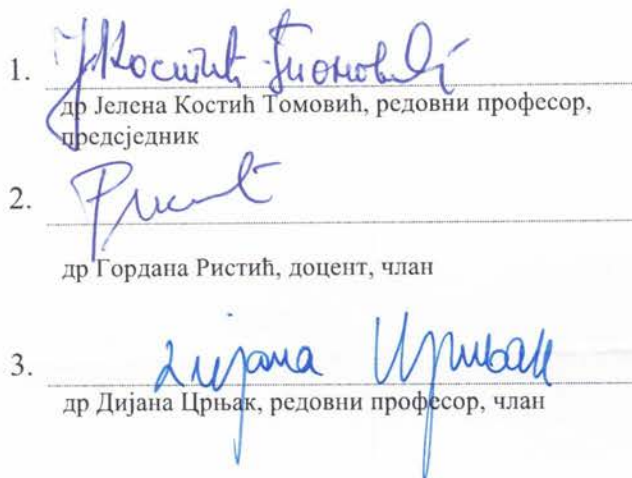 1. Ј Костић Томовић
др Јелена Костић Томовић, редовни професор,
предсједник
2. Ристић
др Гордана Ристић, доцент, члан
3. Дијана Црњак
др Дијана Црњак, редовни професор, члан